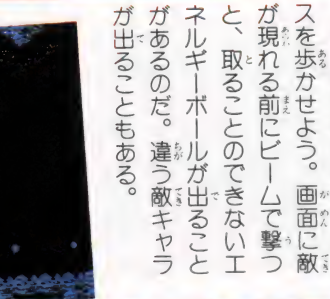 スを歩かせよう。画面に敵
が現れる前にビームで撃つ
と、取ることのできないエ
ネルギーボールが出ること
があるのだ。違う敵キャラ
が出ることもある。